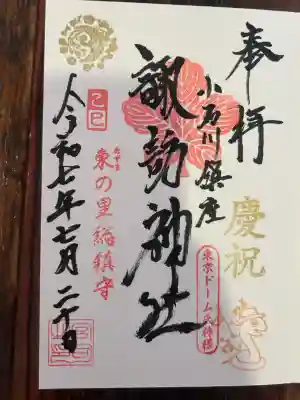 奉拝
慶祝
小石川鎮座
東京ドーム氏神様
諏訪神社
乙巳
東の里総鎮守
令和七年七月二十日